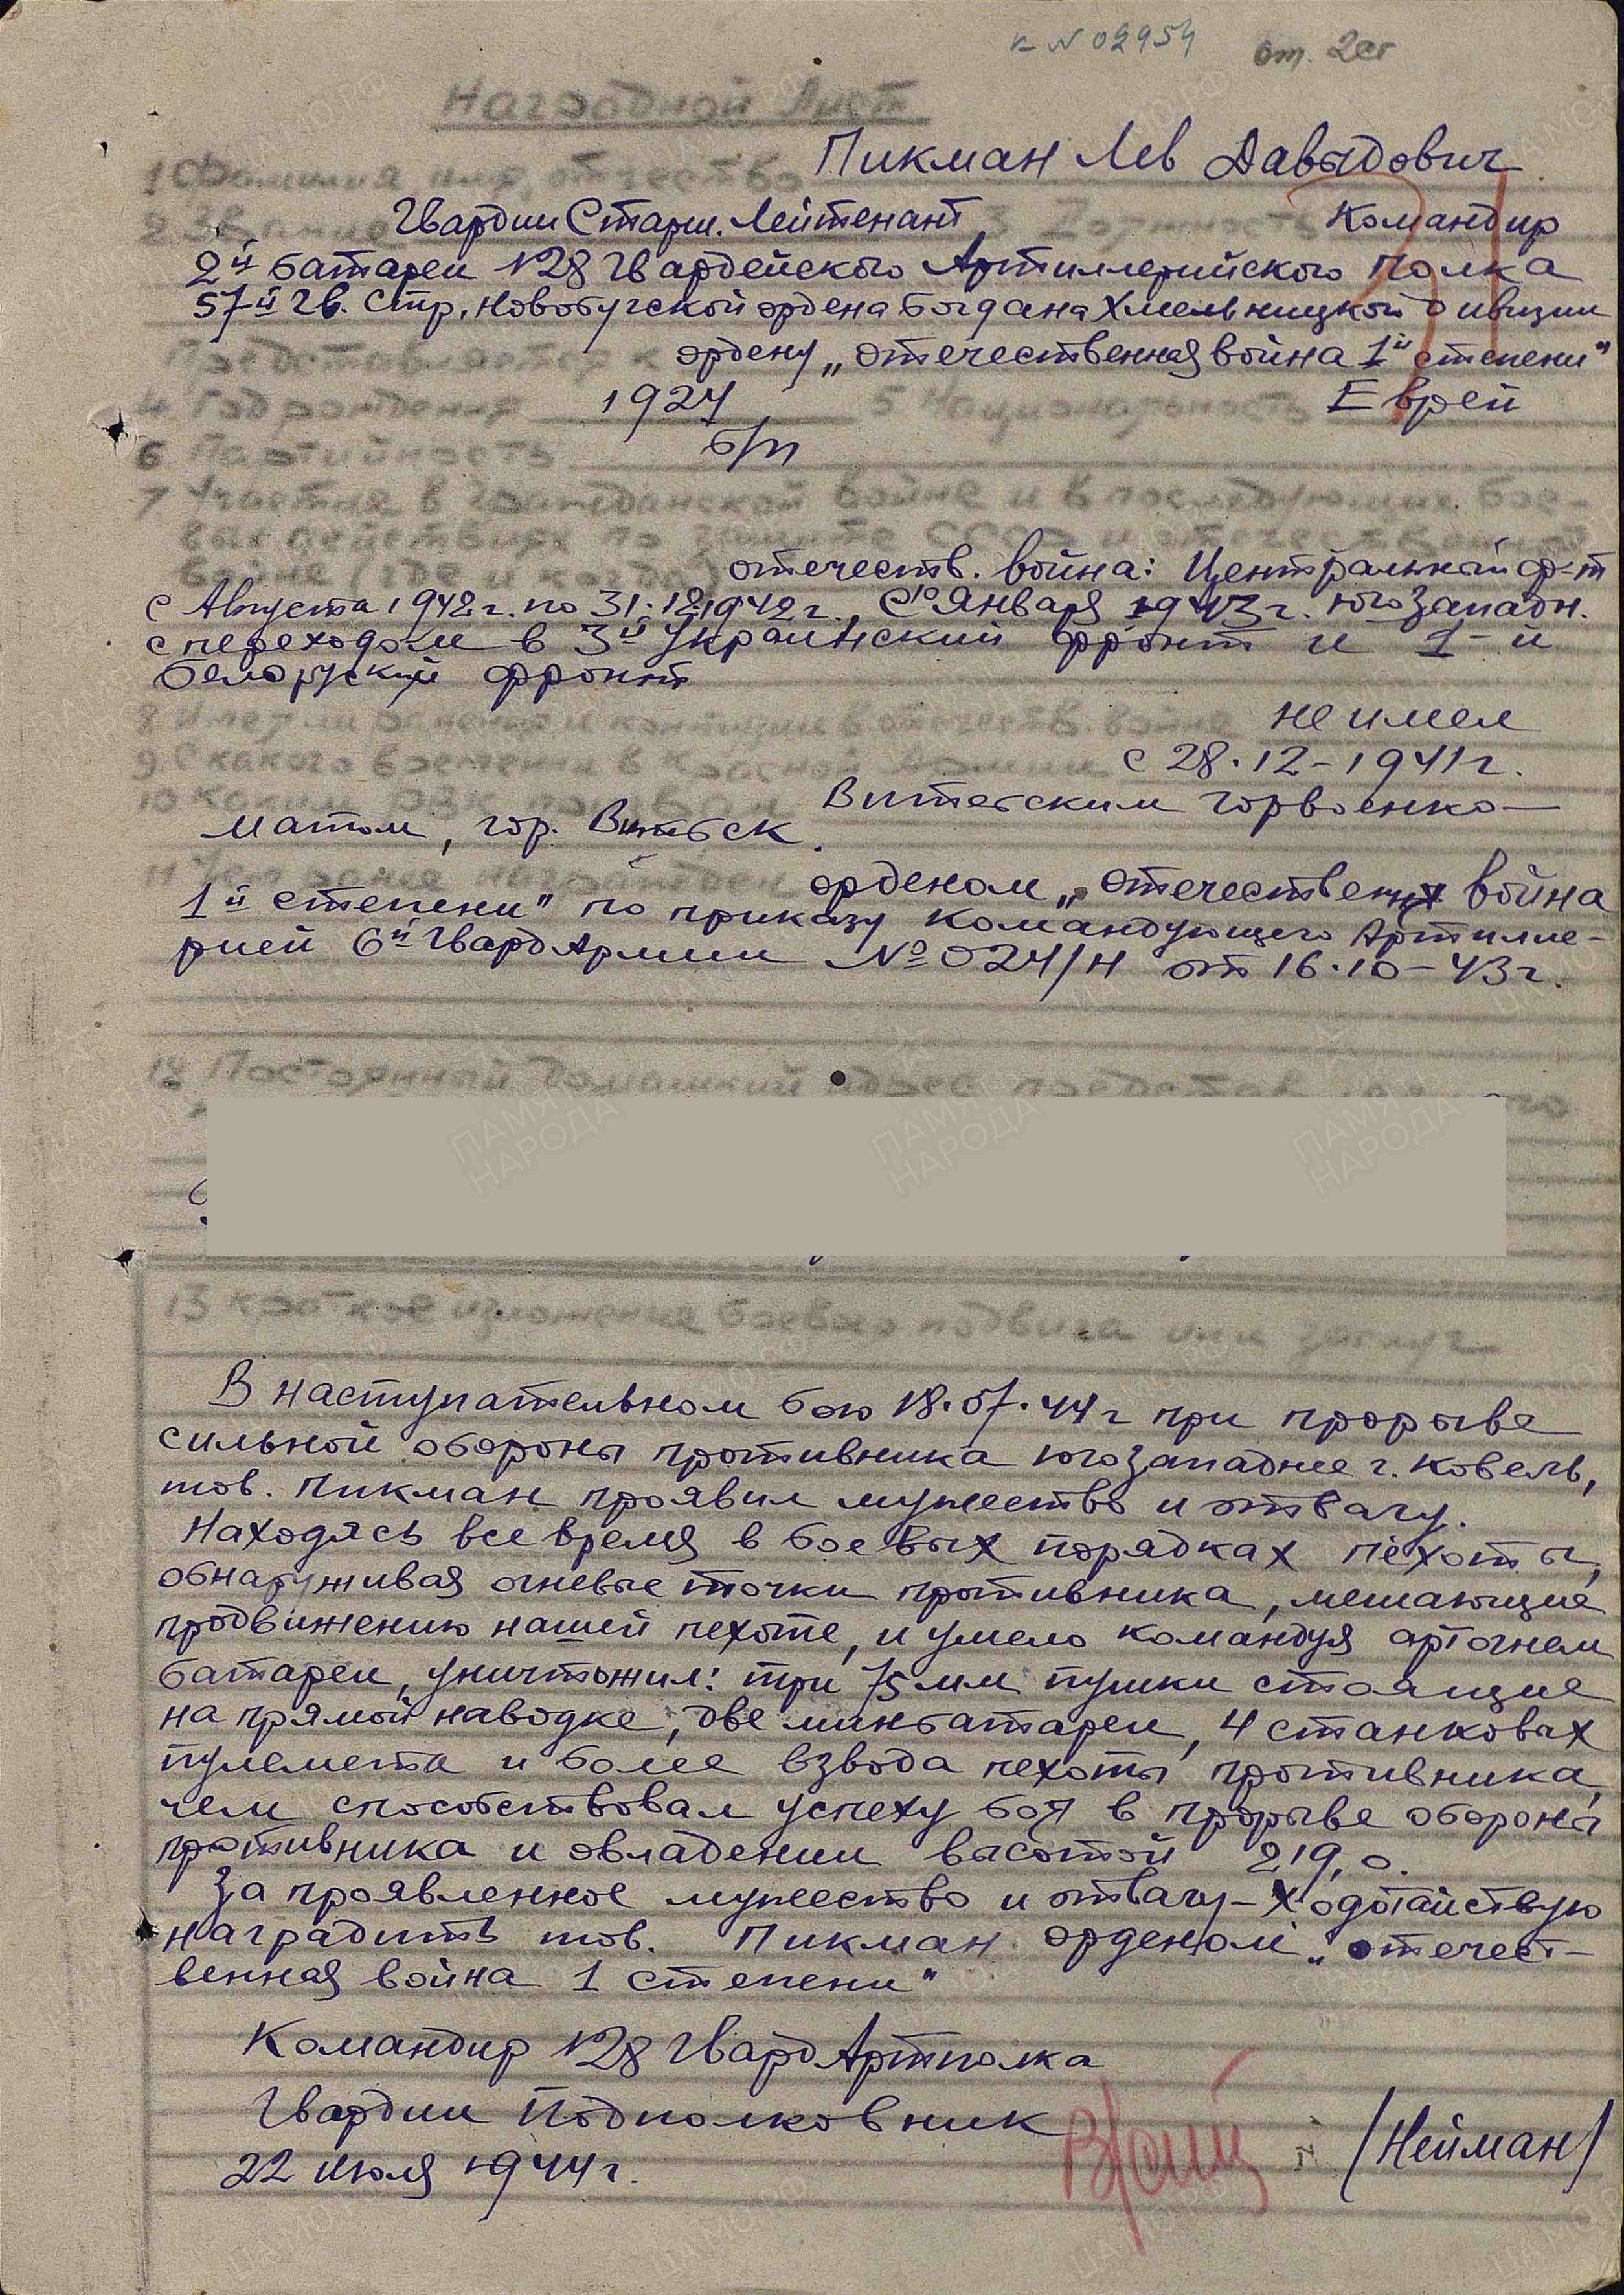 к N 02954 от. 2ст
Наградной Лист
1 Фамилия имя, отчество Пикман Лев Давыдович
2 Звание Гвардии Старш. Лейтенант 3 Должность Командир
2й батареи 128 Гвардейского Артиллерийского Полка
57й Гв. Стр. Новобугской ордена Богдана Хмельницкой дивизии
Представляется к ордену „отечественная война 1й степени"
4 Год рождения 1924 5 Национальность Еврей
6 Партийность б/п
7 Участие в гражданской войне и в последующих бое-
вых действиях по защите СССР и отечественной
войне (где и когда) отечеств. война: Центральный фр-т
с Августа 1942 г. по 31.12.1942 г., С 10 Января 1943 г. югозападн.
с переходом в 3й Украинский фронт и 1-й
белоруский фронт
8 Имеет ли ранения и контузии в отечеств. войне не имел
9 С какого времени в Красной Армии с 28.12-1941 г.
10 Каким РВК призван Витебским Горвоенко-
матом, гор. Витебск.
11 Чем ранее награжден орденом „отечествен война
1й степени" по приказу Командующего Артилле-
рией 6й Гвард Армии № 024/н от 16.10-43 г.
12 Постоянный домашний адрес представляемого
13 Краткое изложение боевого подвига или заслуг
В наступательном бою 18.07.44 г при прорыве
сильной обороны противника югозападнее г. Ковель,
тов. Пикман проявил мужество и отвагу.
Находясь все время в боевых порядках пехоты,
обнаруживая огневые точки противника, мешающие
продвижению нашей пехоте, и умело командуя артогнем
батареи, уничтожил: три 75 мм пушки стоящие
на прямой наводке, две минбатареи, 4 станковых
пулемета и более взвода пехоты противника,
чем способствовал успеху боя в прорыве обороны
противника и овладении высотой 219,0.
За проявленное мужество и отвагу - Ходотайствую
наградить тов. Пикман орденом „отечест-
венная война 1 степени"
Командир 128 Гвард Артполка
Гвардии Подполковник /Нейман/
22 июля 1944 г.
ПАМЯТЬ НАРОДА
ПАМЯТЬ НАРОДА
ПАМЯТЬ НАРОДА